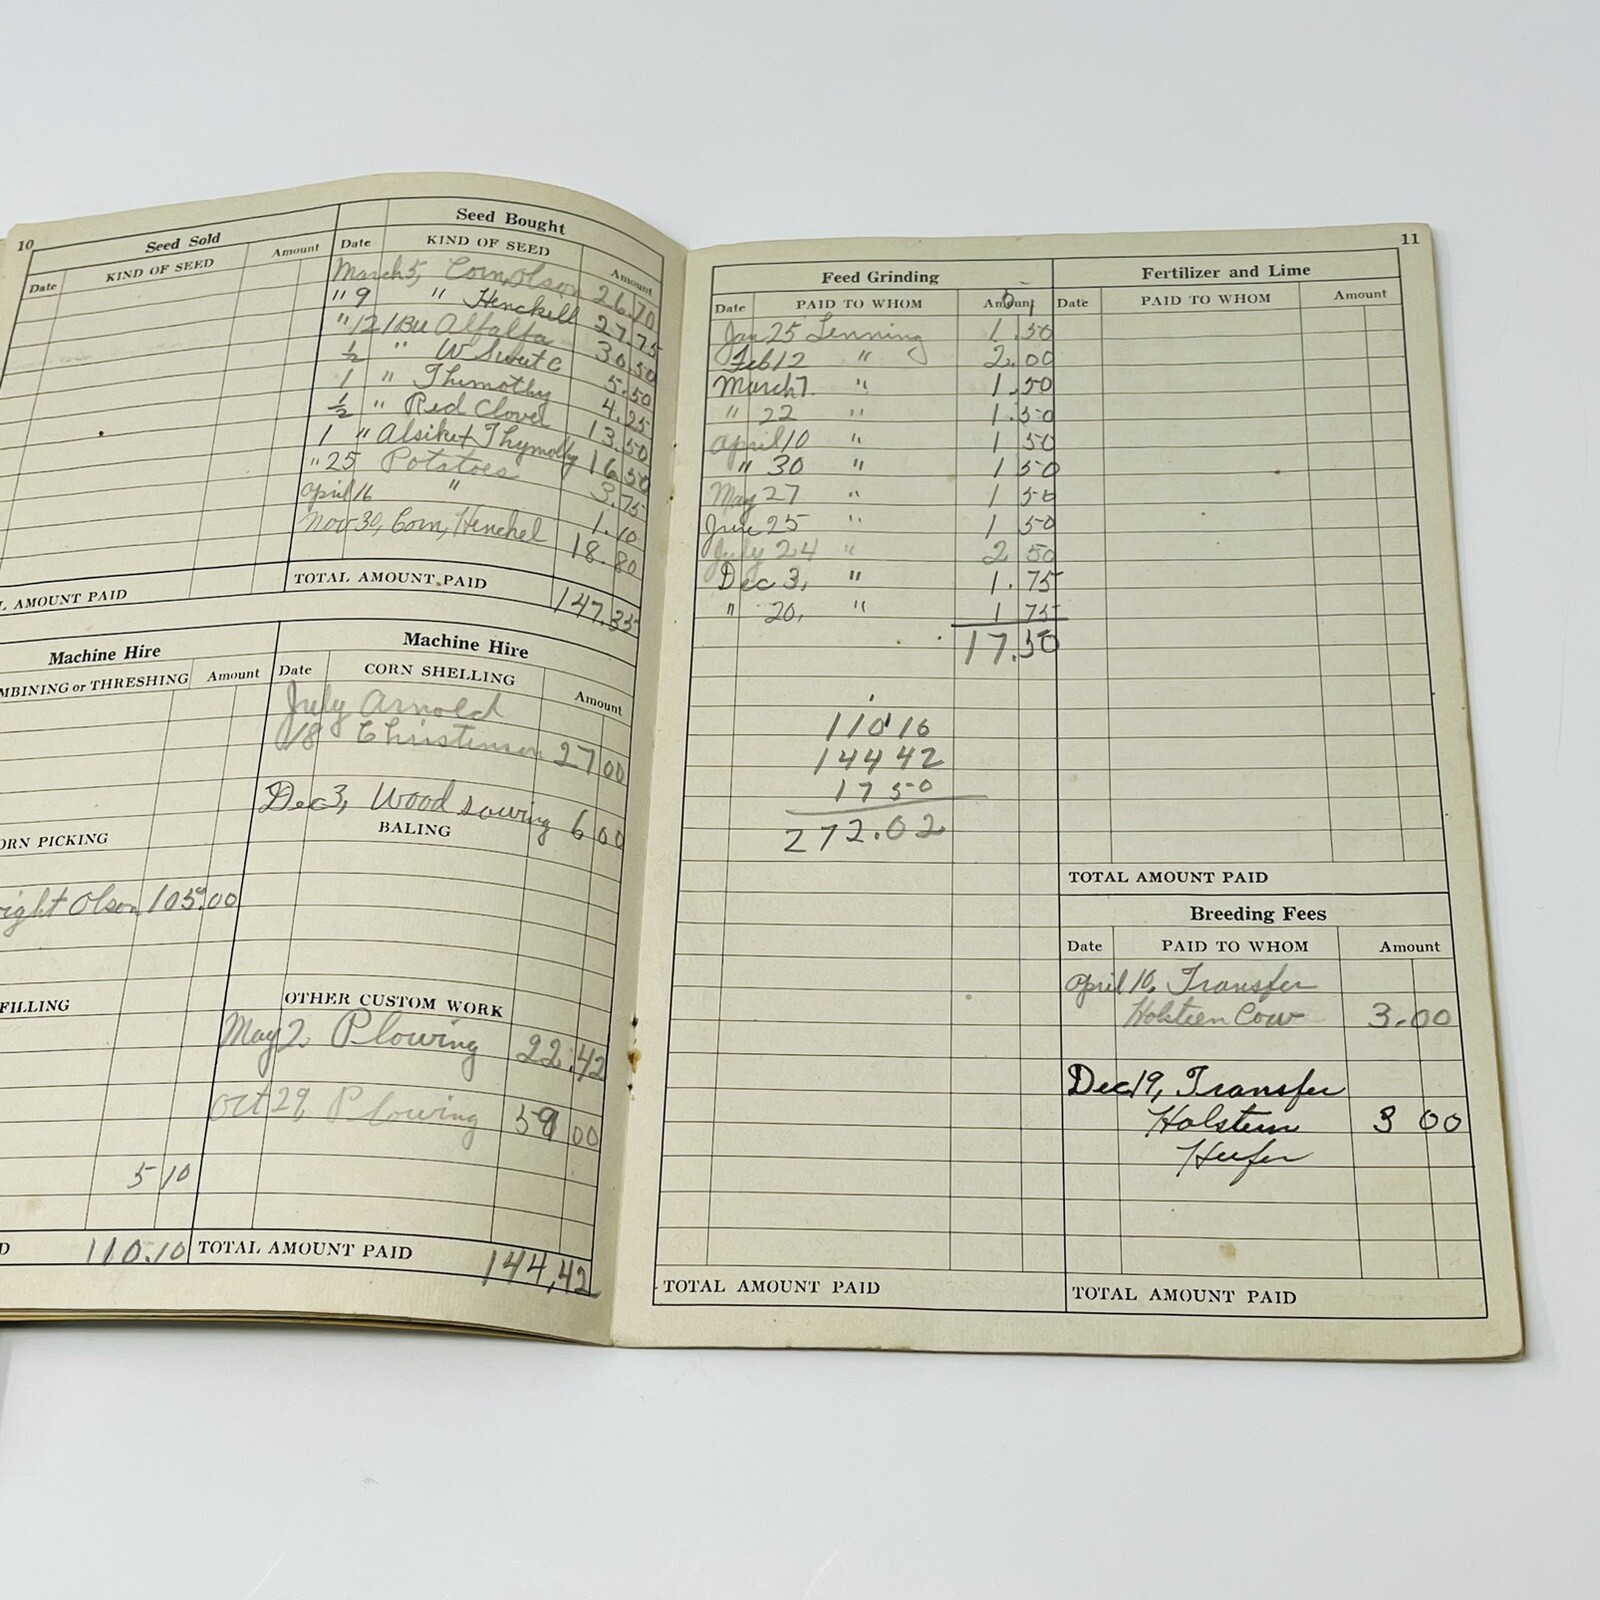 10
Seed Sold
Date KIND OF SEED Amount
L AMOUNT PAID
Seed Bought
Date KIND OF SEED Amount
March 5, Corn, Olson 26.70
" 9 " Henckell 27.75
" 12 1 Bu Alfalfa 30.50
½ " W Sweet C 5.50
1 " Thimothy 4.25
½ " Red Clover 13.50
1 " Alsike + Thymothy 16.50
" 25 Potatoes 3.75
April 16 " 1.10
Nov 30, Corn, Henchel 18.80
TOTAL AMOUNT PAID 147.35
Machine Hire
MBINING or THRESHING Amount
ORN PICKING
right Olson 105.00
FILLING
5 10
D 110.10
Machine Hire
Date CORN SHELLING Amount
July Arnold
18 Christensen 27 00
Dec 3, Wood sawing 6 00
BALING
OTHER CUSTOM WORK
May 2, Plowing 22.42
Oct 29, Plowing 59 00
TOTAL AMOUNT PAID 144.42
11
Feed Grinding
Date PAID TO WHOM Amount
Jan 25 Lenning 1.50
Feb 12 " 2.00
March 7. " 1.50
" 22 " 1.50
April 10 " 1 50
" 30 " 1 50
May 27 " 1 50
June 25 " 1 50
July 24 " 2 50
Dec 3, " 1.75
" 20, " 1 75
17.50
110 16
144 42
17 50
272.02
TOTAL AMOUNT PAID
Fertilizer and Lime
Date PAID TO WHOM Amount
TOTAL AMOUNT PAID
Breeding Fees
Date PAID TO WHOM Amount
April 10, Transfer
Holsteen Cow 3.00
Dec 19, Transfer
Holstein 3 00
Heifer
TOTAL AMOUNT PAID